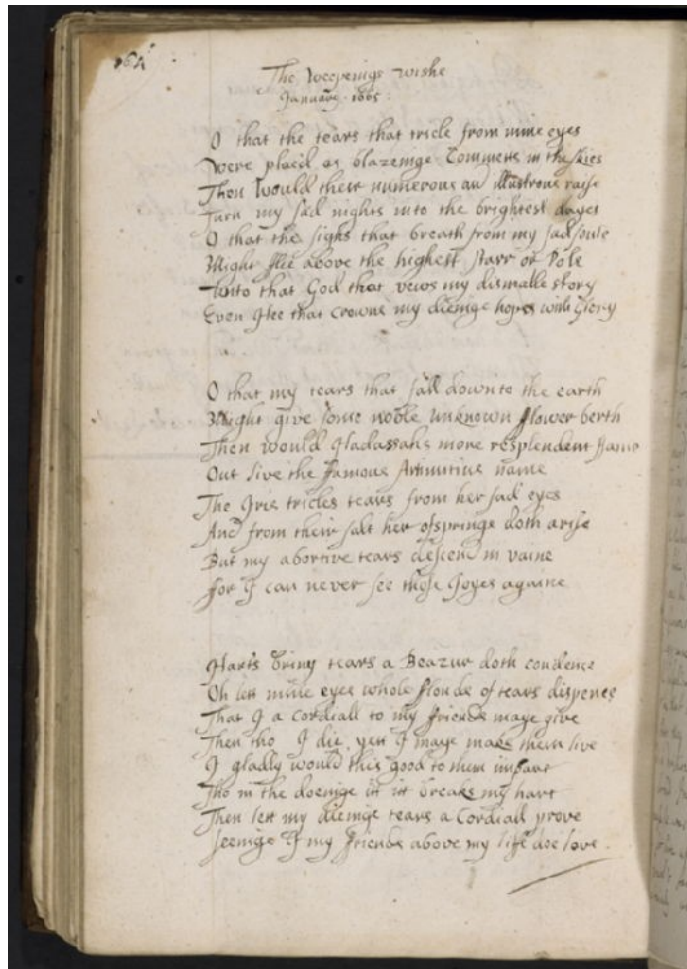 The weepeinge wishe
January. 1665:
O that the tears that tricle from mine eyes
Were placd as blazeinge Commets in the skies
Then would their numerous and illustrous raise
Turn my sad nights into the brightest dayes
O that the sighs that breath from my sad soule
Might flie above the highest starr or Pole
Unto that God that vews my dismalle story
Even Hee that crowns my dieinge hopes with Glory
O that my tears that fall down to the earth
Might give some noble unknown flower berth
Then would Hadassahs more resplendent Fame
Out live the famous Artimitius name
The Iris tricles tears from her sad eyes
And from their salt her ofspringe doth arise
But my abortive tears descend in vaine
For I can never see those Joyes againe
Harts briny tears a Beazur doth condence
Oh lett mine eyes whole flouds of tears dispence
That I a Cordiall to my friends maye give
Then tho I die yett I maye make them live
I gladly would this good to them impart
Tho in the doeinge itt itt breaks my hart
Then lett my dieinge tears a Cordiall prove
Seeinge I my friends above my life doe love